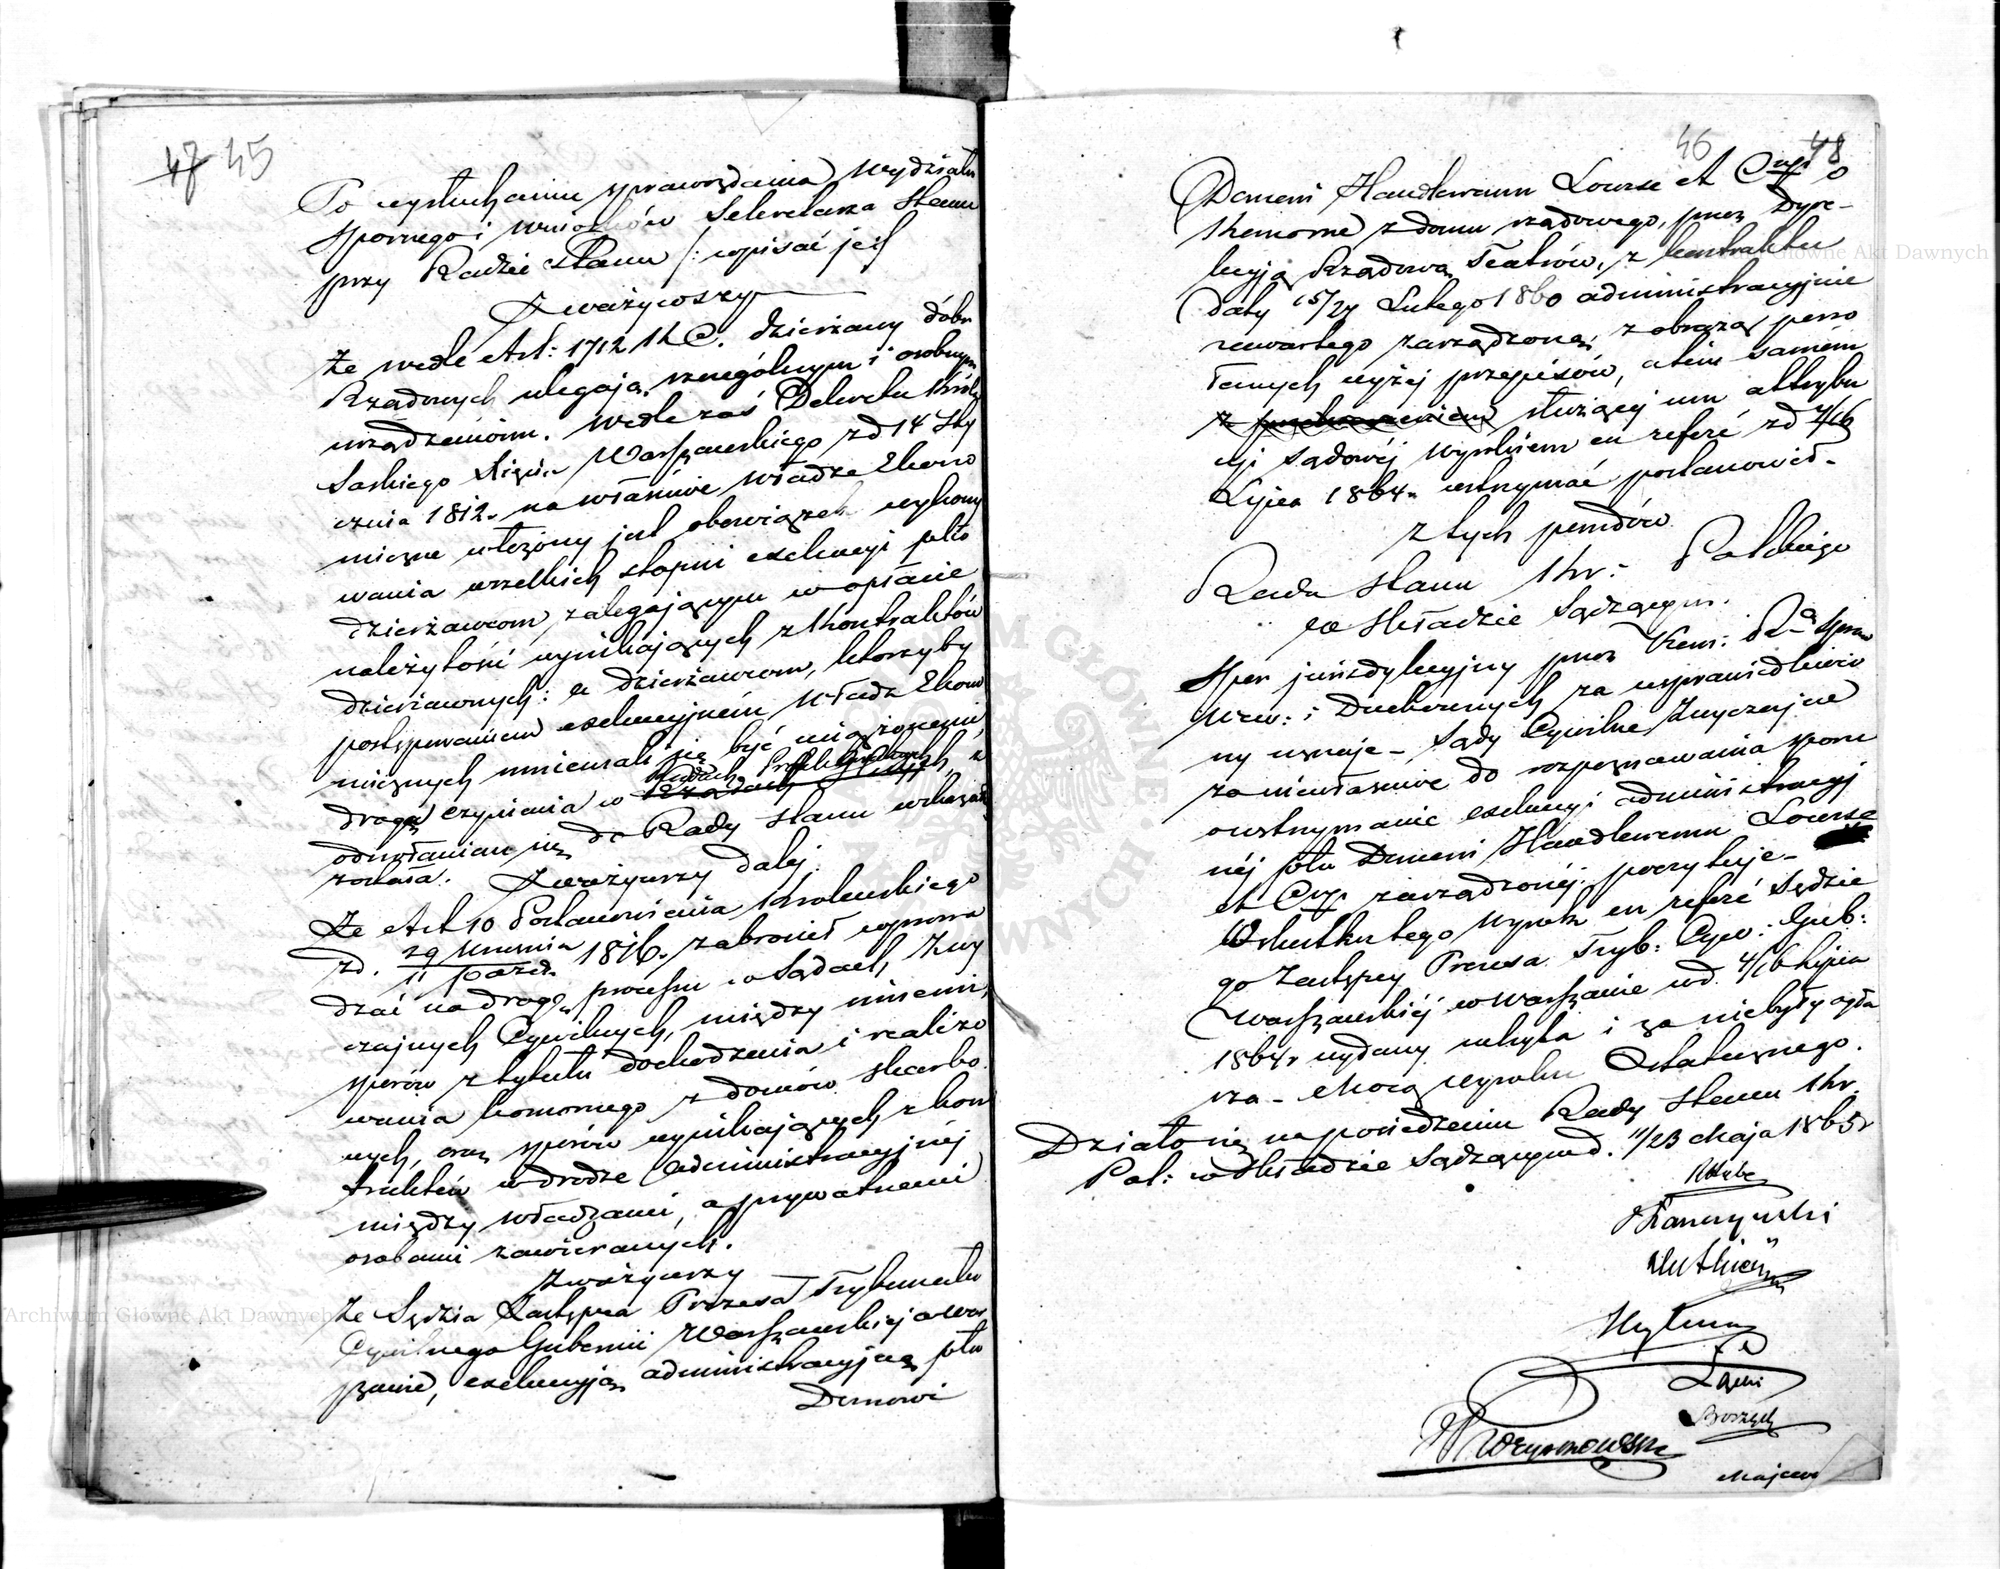 47 45
Po wysłuchaniu sprawozdania Wydziału
Spornego i wniosków Sekretarza Stanu
przy Radzie Stanu /: wpisać jest
Zważywszy
Że wedle Art: 1712 K C. dzierżawy dóbr
Rządowych ulegają szczególnym i osobnym
urządzeniom. Wedle zaś Dekretu Króla
Saskiego Xięcia Warszawskiego z d 14 Sty
cznia 1812. na właściwe władze Ekono
miczne włożony jest obowiązek wykony
wania wszelkich stopni exekucyi ptko
dzierżawcom zalegającym w opłacie
należytości wynikających z Kontraktów
dzierżawnych: a dzierżawcom, którzyby
postępowaniem exekucyjném Władz Ekono
micznych mniemali się być uciążonemi,
Radach Prefekturalnych
droga czynienia w , a
odwołania się do Rady Stanu wskazaną
została.
Zważywszy dalej
Że Art 10 Postanowienia Królewskiego
z d. 29 Września / 11 Paźdz. 1816. zabronił wprowa
dzać na drogę processu w Sądach Zwy
czajnych Cywilnych, między innemi,
sporów z tytułu dochodzenia i realizo
wania komornego z domów skarbo
wych, oraz sporów wynikających z kon
traktów w drodze administracyjnéj
między władzami, a prywatnemi
osobami zawieranych.
Zważywszy
Że Sędzia Zastępca Prezesa Trybunału
Cywilnego Gubernii Warszawskiej w War
szawie, exekucyją administracyjną ptko
Domowi
46 48
Domowi Handlowemu Lourse et Comp o
Komorne z domu rządowego, przez Dyre-
kcyją Rządową Teatrów, z kontraktu
daty 15/27 Lutego 1860 administracyjnie
zawartego zarządzoną, z obrazą powo
łanych wyżej przepisów, a tém samém
z przekroczeniem służącej mu attrybu
cyi Sądowéj Wyrokiem en referé z d 4/16
Lipca 1864r wstrzymać postanowił -
z tych powodów
Rada Stanu Kr: Polskiego
w Składzie Sądzącym.
Spór jurisdykcyjny przez Kom: Rz Spraw
Wew: i Duchownych za usprawiedliwio
ny uznaje - Sądy Cywilne Zwyczajne
za niewłaściwe do rozpoznawania sporu
o wstrzymanie exekucyi administracyj
néj ptko Domowi Handlowemu Lourse
et Comp zarządzonéj, poczytuje -
W skutku tego Wyrok en referé Sędzie
go Zastępcy Prezesa Tryb: Cyw: Gub:
Warszawskiéj w Warszawie w d. 4/16 Lipca
1864r wydany uchyla i za niebyły ogła
sza - Mocą wyroku Ostatecznego.
Działo się na posiedzeniu Rady Stanu Kr.
Pol: w Składzie Sądzącym d. 11/23 Maja 1865r
Łąski